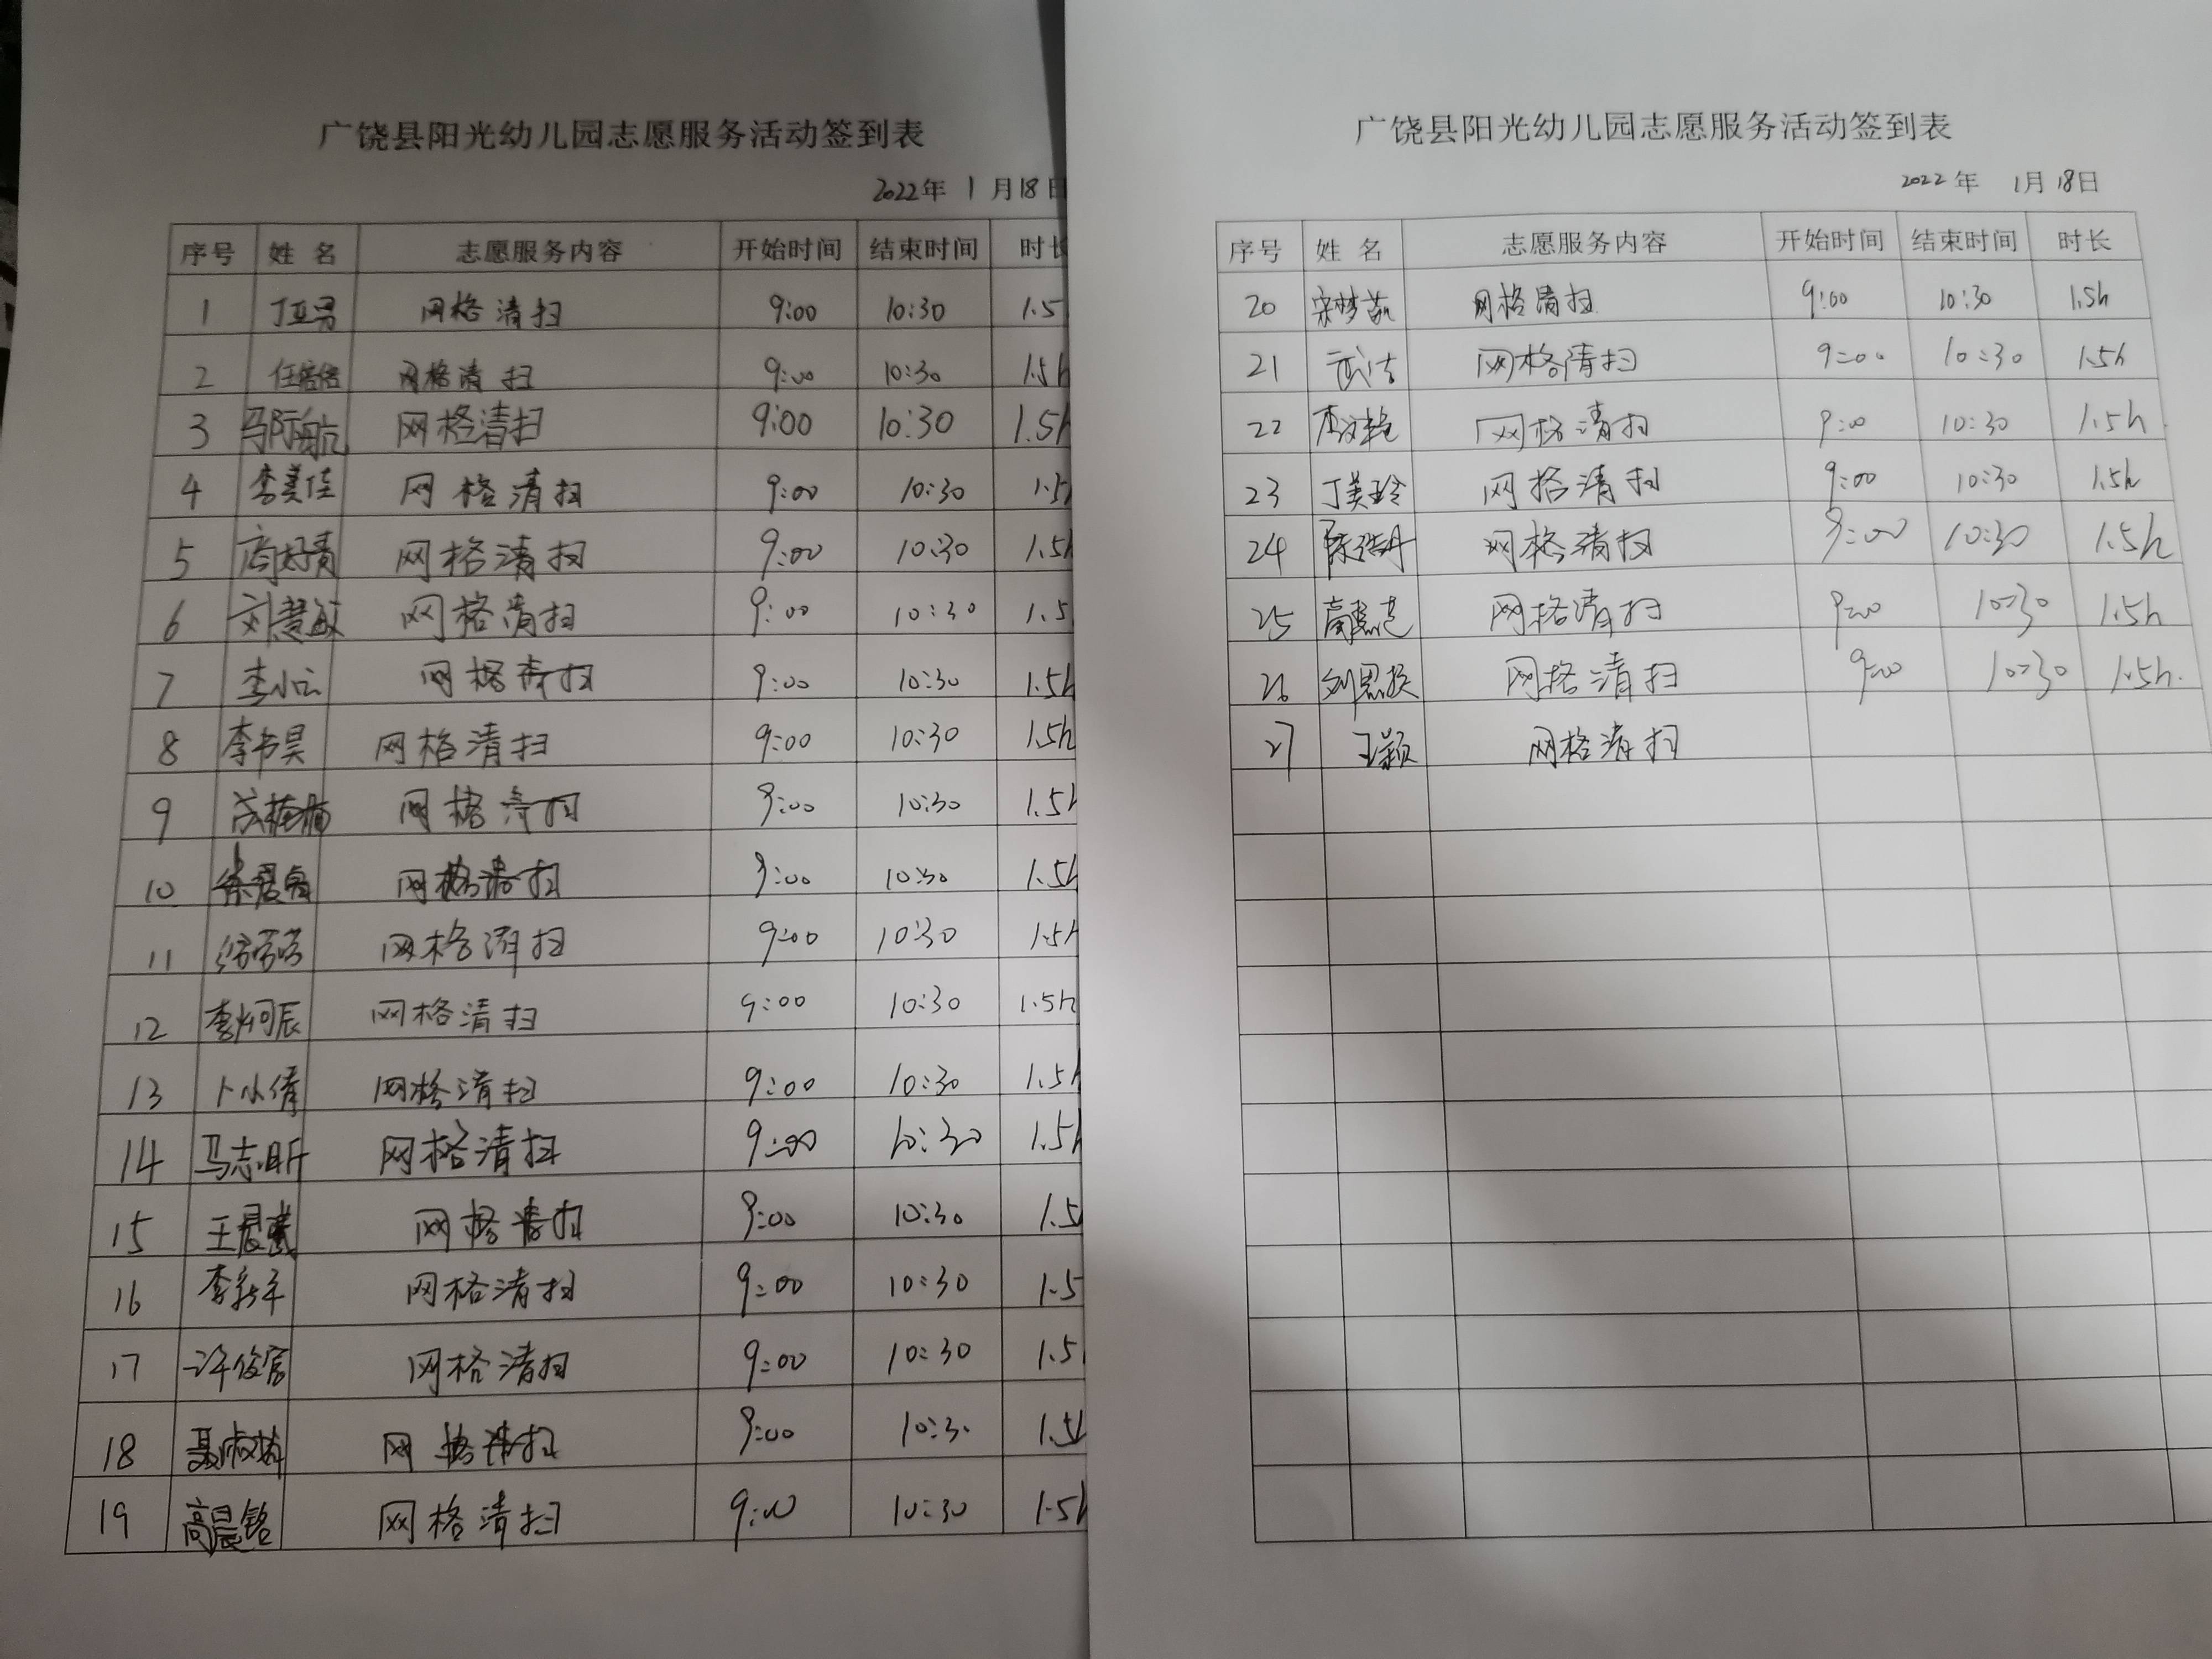 广饶县阳光幼儿园志愿服务活动签到表
2022年 1月18日
序号 姓名 志愿服务内容 开始时间 结束时间 时长
1 丁亚男 网格清扫 9:00 10:30 1.5
2 任倍倍 网格清扫 9:00 10:30 1.5h
3 马际航 网格清扫 9:00 10:30 1.5h
4 李美佳 网格清扫 9:00 10:30 1.5h
5 网格清扫 9:00 10:30 1.5h
6 刘慧敏 网格清扫 9:00 10:30 1.5
7 网格清扫 9:00 10:30 1.5h
8 李书昊 网格清扫 9:00 10:30 1.5h
9 网格清扫 9:00 10:30 1.5h
10 网格清扫 9:00 10:30 1.5h
11 网格清扫 9:00 10:30 1.5h
12 网格清扫 9:00 10:30 1.5h
13 卜小倩 网格清扫 9:00 10:30 1.5h
14 马志昕 网格清扫 9:00 10:30 1.5h
15 网格清扫 9:00 10:30 1.5
16 网格清扫 9:00 10:30 1.5
17 网格清扫 9:00 10:30 1.5
18 网格清扫 9:00 10:30 1.5h
19 高晨铭 网格清扫 9:00 10:30 1.5h
广饶县阳光幼儿园志愿服务活动签到表
2022年 1月18日
序号 姓名 志愿服务内容 开始时间 结束时间 时长
20 宋梦茹 网格清扫 9:00 10:30 1.5h
21 武洁 网格清扫 9:00 10:30 1.5h
22 网格清扫 9:00 10:30 1.5h
23 丁美玲 网格清扫 9:00 10:30 1.5h
24 网格清扫 9:00 10:30 1.5h
25 网格清扫 9:00 10:30 1.5h
26 网格清扫 9:00 10:30 1.5h.
27 王颖 网格清扫